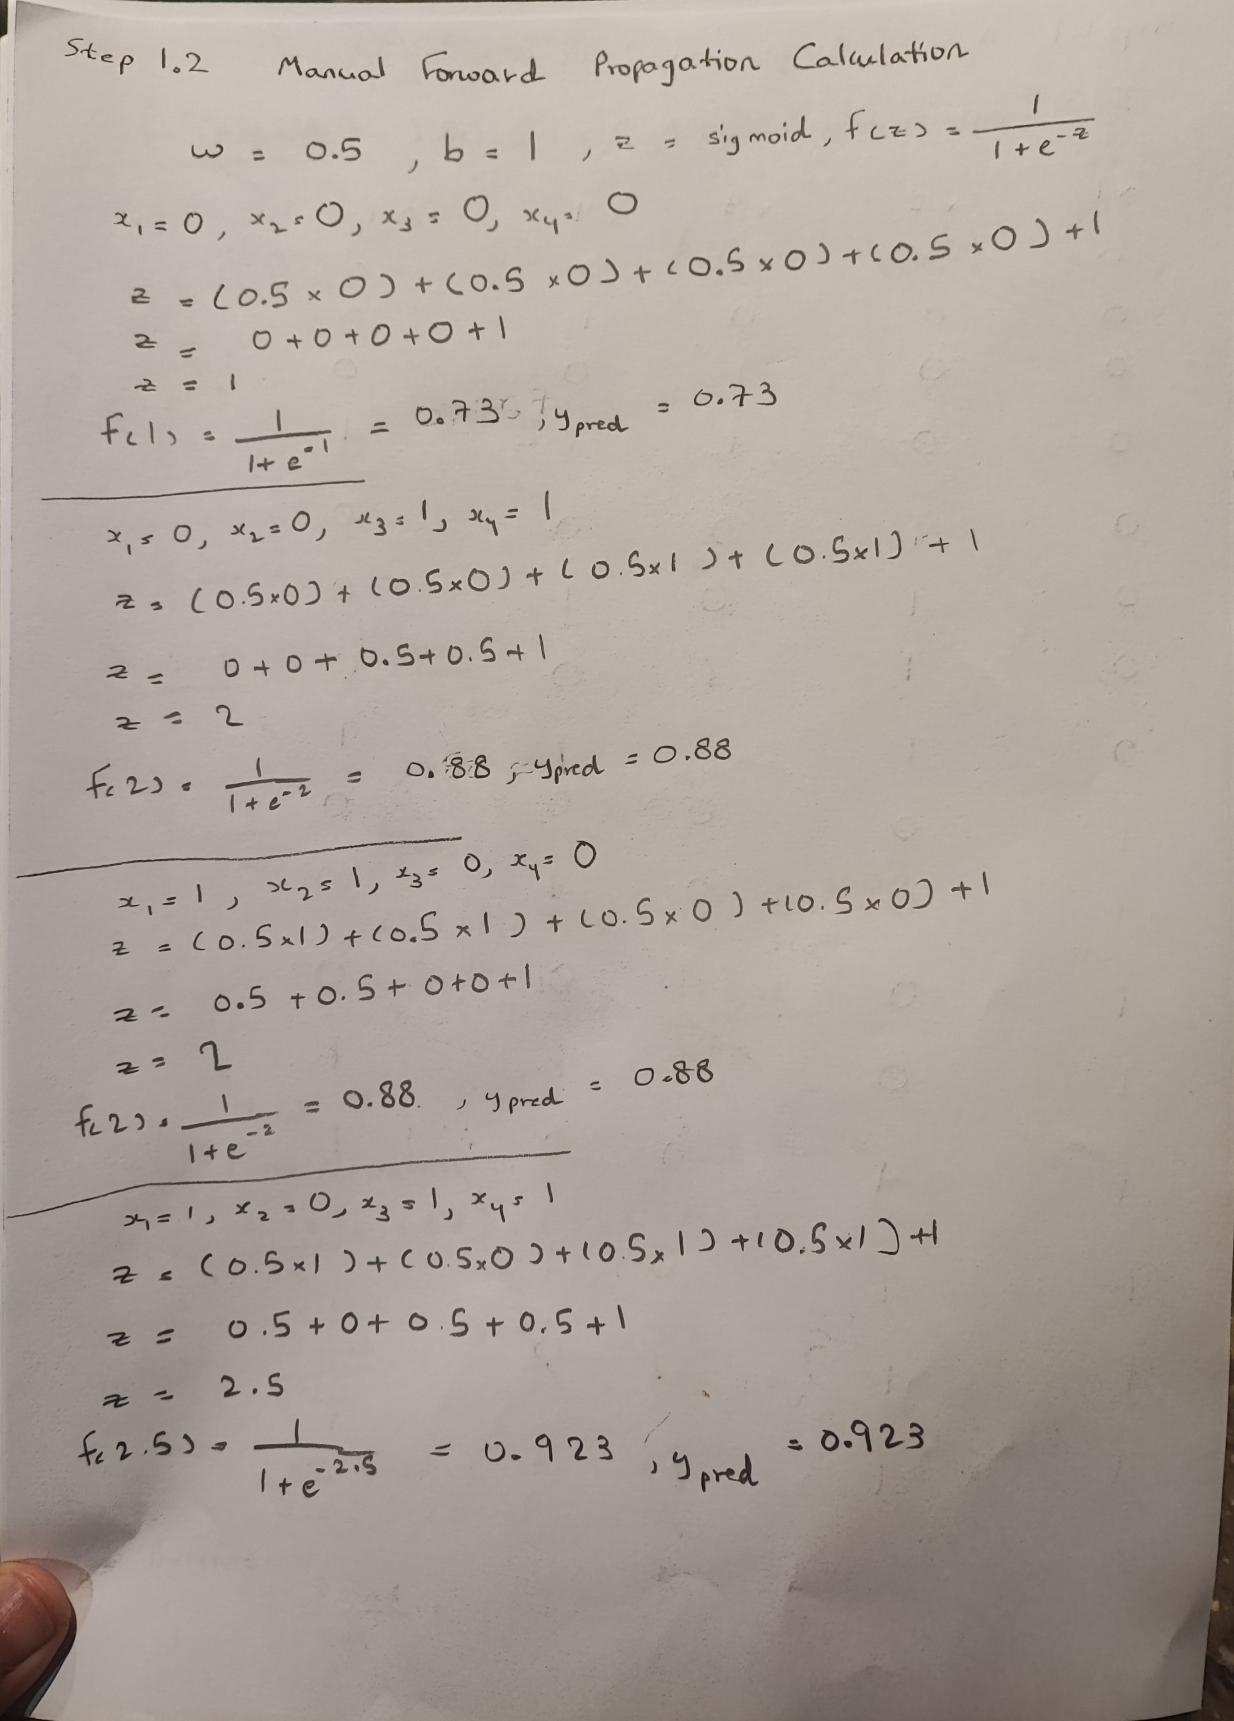 Step 1.2 Manual Forward Propagation Calculation
w = 0.5 , b = 1 , z = sigmoid, f(z) = 1 / 1 + e^-z
x₁ = 0, x₂ = 0, x₃ = 0, x₄ = 0
z = (0.5 × 0) + (0.5 × 0) + (0.5 × 0) + (0.5 × 0) + 1
z = 0 + 0 + 0 + 0 + 1
z = 1
f(1) = 1 / 1 + e^-1 = 0.73 , y pred = 0.73
x₁ = 0, x₂ = 0, x₃ = 1, x₄ = 1
z = (0.5×0) + (0.5×0) + (0.5×1) + (0.5×1) + 1
z = 0 + 0 + 0.5 + 0.5 + 1
z = 2
f(2) = 1 / 1 + e^-2 = 0.88 , y pred = 0.88
x₁ = 1, x₂ = 1, x₃ = 0, x₄ = 0
z = (0.5×1) + (0.5 × 1) + (0.5 × 0) + (0.5 × 0) + 1
z = 0.5 + 0.5 + 0 + 0 + 1
z = 2
f(2) = 1 / 1 + e^-2 = 0.88 , y pred = 0.88
x₁ = 1, x₂ = 0, x₃ = 1, x₄ = 1
z = (0.5×1) + (0.5×0) + (0.5×1) + (0.5×1) + 1
z = 0.5 + 0 + 0.5 + 0.5 + 1
z = 2.5
f(2.5) = 1 / 1 + e^-2.5 = 0.923 , y pred = 0.923